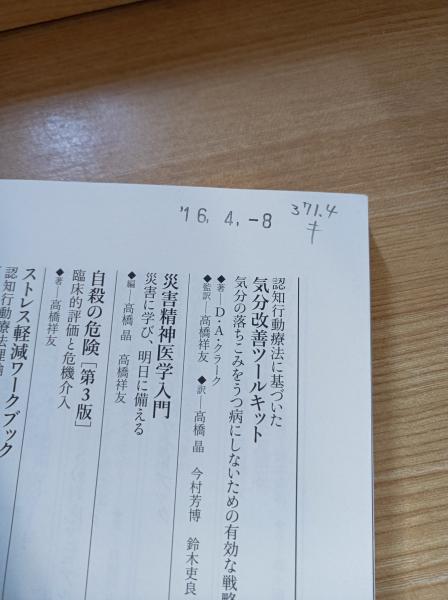 '16.4.-8
371.4
キ
認知行動療法に基づいた
気分改善ツールキット
気分の落ちこみをうつ病にしないための有効な戦略
◆著―D・A・クラーク
◆監訳―高橋祥友 ◆訳―高橋 晶 今村芳博 鈴木吏良
災害精神医学入門
災害に学び、明日に備える
◆編―高橋 晶 高橋祥友
自殺の危険[第3版]
臨床的評価と危機介入
◆著―高橋祥友
ストレス軽減ワークブック
認知行動療法理論